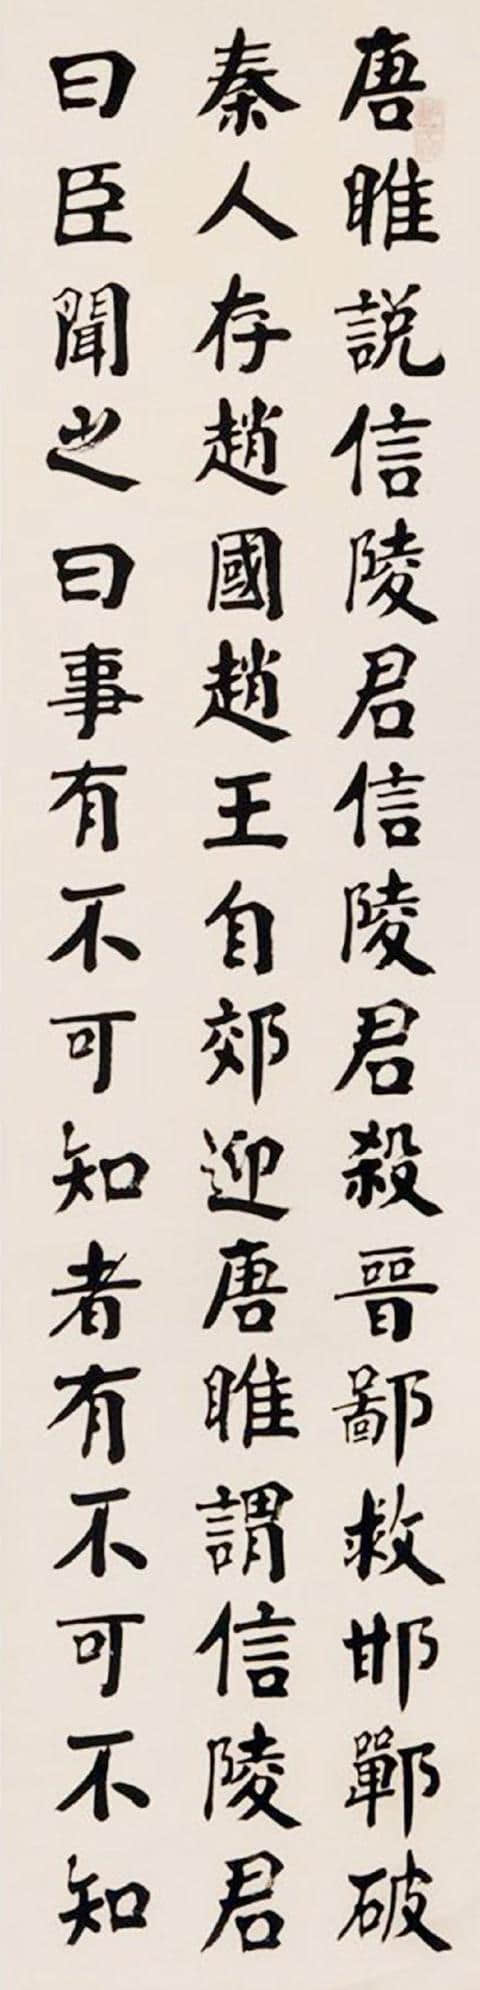 唐睢說信陵君信陵君殺晉鄙救邯鄲破
秦人存趙國趙王自郊迎唐睢謂信陵君
曰臣聞之曰事有不可知者有不可不知